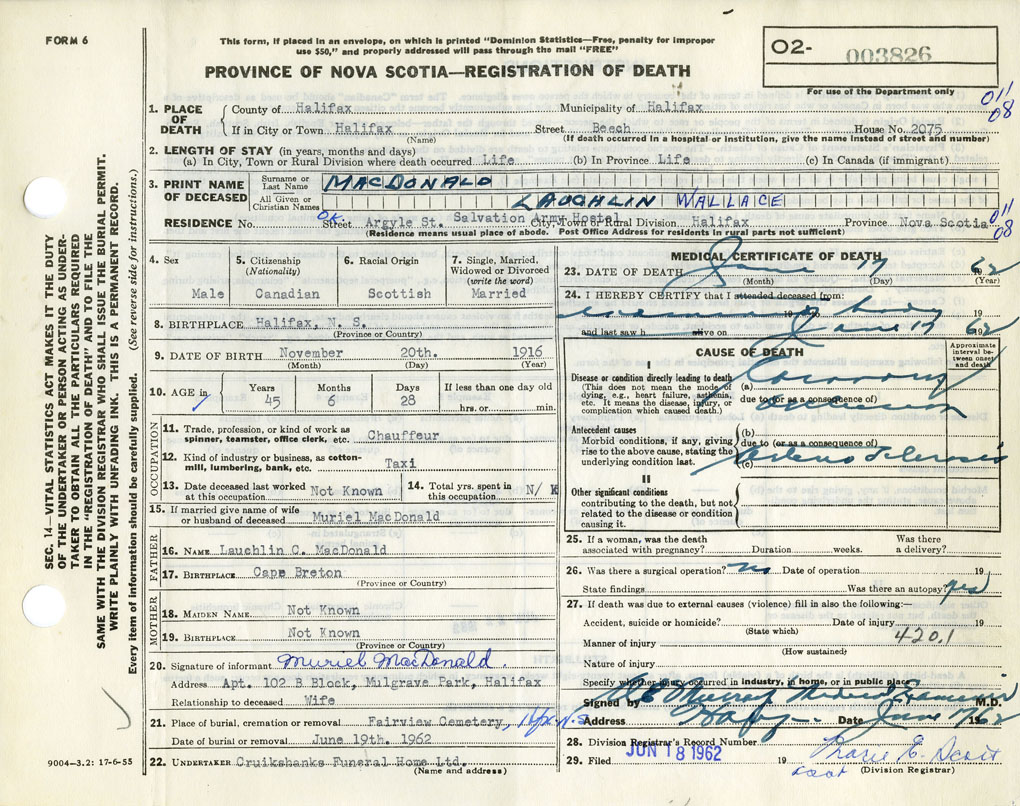 FORM 6
This form, if placed in an envelope, on which is printed "Dominion Statistics—Free, penalty for improper
use $50," and properly addressed will pass through the mail "FREE"
PROVINCE OF NOVA SCOTIA—REGISTRATION OF DEATH
O2- 003826
For use of the Department only
011
08
1. PLACE OF DEATH
County of Halifax Municipality of Halifax
If in City or Town Halifax Street Beech House No. 2075
(Name) (If death occurred in a hospital or institution, give the name instead of street and number)
2. LENGTH OF STAY (in years, months and days)
(a) In City, Town or Rural Division where death occurred Life (b) In Province Life (c) In Canada (if immigrant)
3. PRINT NAME OF DECEASED
Surname or Last Name MACDONALD
All Given or Christian Names LAUGHLIN WALLACE
RESIDENCE No. O.K. Street Argyle St. Salvation Army Hostel City, Town or Rural Division Halifax Province Nova Scotia
011
08
(Residence means usual place of abode. Post Office Address for residents in rural parts not sufficient)
4. Sex Male
5. Citizenship (Nationality) Canadian
6. Racial Origin Scottish
7. Single, Married, Widowed or Divorced (write the word) Married
8. BIRTHPLACE Halifax, N. S.
(Province or Country)
9. DATE OF BIRTH November 20th. 1916
(Month) (Day) (Year)
10. AGE in Years 45 Months 6 Days 28 If less than one day old hrs. or min.
OCCUPATION
11. Trade, profession, or kind of work as spinner, teamster, office clerk, etc. Chauffeur
12. Kind of industry or business, as cotton-mill, lumbering, bank, etc. Taxi
13. Date deceased last worked at this occupation Not Known
14. Total yrs. spent in this occupation N/K
15. If married give name of wife or husband of deceased Muriel MacDonald
FATHER
16. NAME Lauchlin C. MacDonald
17. BIRTHPLACE Cape Breton
(Province or Country)
MOTHER
18. MAIDEN NAME Not Known
19. BIRTHPLACE Not Known
(Province or Country)
20. Signature of informant Muriel MacDonald.
Address Apt. 102 B Block, Mulgrave Park, Halifax
Relationship to deceased Wife
21. Place of burial, cremation or removal Fairview Cemetery, Hfx. N.S.
Date of burial or removal June 19th. 1962
22. UNDERTAKER Cruikshanks Funeral Home Ltd.
(Name and address)
MEDICAL CERTIFICATE OF DEATH
23. DATE OF DEATH June 17 1962
(Month) (Day) (Year)
24. I HEREBY CERTIFY that I attended deceased from:
body 19
and last saw h alive on June 17 1962
CAUSE OF DEATH
Approximate interval between onset and death
I
Disease or condition directly leading to death
(This does not mean the mode of dying, e.g., heart failure, asthenia, etc. It means the disease, injury, or complication which caused death.)
(a) Coronary
due to (or as a consequence of)
occlusion
Antecedent causes
Morbid conditions, if any, giving rise to the above cause, stating the underlying condition last.
(b)
due to (or as a consequence of)
(c) Arterio Sclerosis
II
Other significant conditions
contributing to the death, but not related to the disease or condition causing it.
25. If a woman, was the death associated with pregnancy? Duration weeks. Was there a delivery?
26. Was there a surgical operation? no Date of operation 19
State findings Was there an autopsy? yes
27. If death was due to external causes (violence) fill in also the following:—
Accident, suicide or homicide? Date of injury 19
(State which)
420.1
Manner of injury
(How sustained)
Nature of injury
Specify whether injury occurred in industry, in home, or in public place
Signed by Medical Examiner M.D.
Address Hfx Date June 17 1962
28. Division Registrar's Record Number
29. Filed JUN 18 1962 19
(Division Registrar)
SEC. 14—VITAL STATISTICS ACT MAKES IT THE DUTY
OF THE UNDERTAKER OR PERSON ACTING AS UNDER-
TAKER TO OBTAIN ALL THE PARTICULARS REQUIRED
IN THE "REGISTRATION OF DEATH" AND TO FILE THE
SAME WITH THE DIVISION REGISTRAR WHO SHALL ISSUE THE BURIAL PERMIT.
WRITE PLAINLY WITH UNFADING INK. THIS IS A PERMANENT RECORD.
Every item of information should be carefully supplied. (See reverse side for instructions.)
9004-3.2: 17-6-55